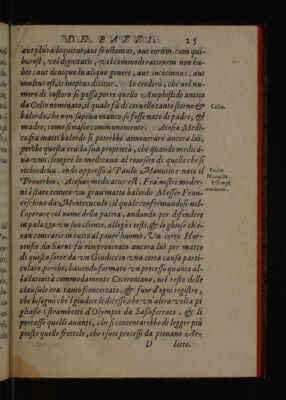 DE PAZZI. 25
aut plura loquitur, aut se ostentat, aut eorum, cum qui-
bus est, vel dignitatis, vel commodi rationem non ha-
bet, aut denique in aliquo genere, aut inconcinnus, aut
multus est, is ineptus dicitur. Io crederò, che nel nu-
mero di costoro si possa porre quello Amphistide antico
da Celio nominato, al quale fù di ceruello tanto storno &
balordo, che non sapeua manco se fosse nato di padre, &
madre, come si nasce communemente. Acesia Medi-
co frà matti balordi si potrebbe annouerare ancora lui,
perche questa era la sua proprietà, che quando medica-
ua vno, sempre lo medicaua al rouescio di quello che si
richiedeua. onde appresso à Paulo Manutio è nato il
Prouerbio. Acesias medicatus est. Frà nostri moder-
ni è stato tenuto vn gran matto balordo Messer Fran-
ceschino da Montecuculo, il quale confermandosi nel-
l'operare col nome della patria, andando per difendere
in palazzo vn suo cliente, allegò i testi, & le ghiose ch'e-
ran contrarie in tutto al pauer'huomo. Vn certo Hor-
tensio da Sarni fù rimprouerato ancora lui per matto
di questa sorte da vn Giudice in vna certa causa parti-
colare, perche, hauendo formato vn processo quanto al-
la latinità commodamente Ciceroniano, nel resto delle
clausule era tanto sconcertato, & fuor d'ogni registro,
che bisognò che'l giudice li dicesse, che vn'altra volta pi
gliasse i strambotti d'Olympo da Sassoferrato, & li
portasse quelli auanti, che si contentarebbe di legger più
presto quelle frottole, che i suoi processi da piouano Ar-
D lotto.
Celio.
Paulo
Manutio.
Essempi
moderni.